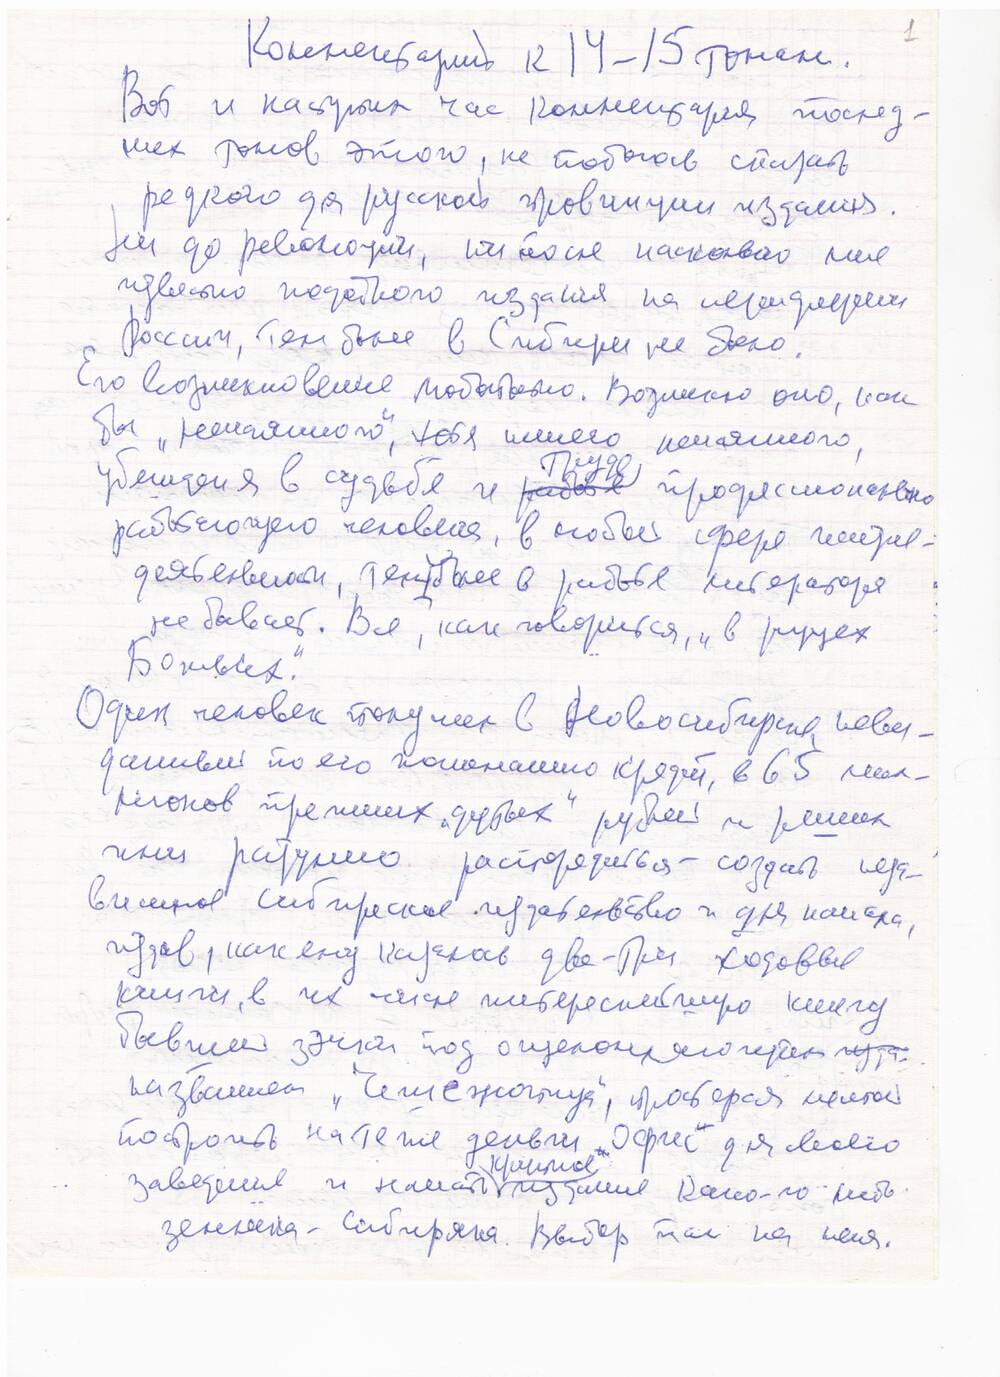 1
Комментарий к 14–15 томам.
Вот и наступил час комментария послед-
них томов этого, не побоюсь сказать
редкого для русской провинции издания.
Ни до революции, ни после насколько мне
известно подобного издания на периферии
России, тем более в Сибири не было.
Его возникновение любопытно. Возникло оно, как
бы „нечаянного", хотя ничего нечаянного,
убеждён я в судьбе и труде профессионально
работающего человека, в особой сфере
деятельности, тем более в работе литератора
не бывает. Всё, как говорится, „в руцех
Божьих".
Один человек получил в Новосибирске неви-
данный по его понятию кредит, в 65 мил-
лионов прежних „дутых" рублей и решил
ими разумно распорядиться – создать неза-
висимое сибирское издательство и для начала,
издав, как ему казалось два-три ходовые
книги, в их числе интереснейшую книгу
бывшей зэчки под ошеломляющим
названием „Чешежопица",
построить на те же деньги „Офис" для своего
заведения и начать крупное издание какого-то
земляка – сибиряка. Выбор пал на меня.